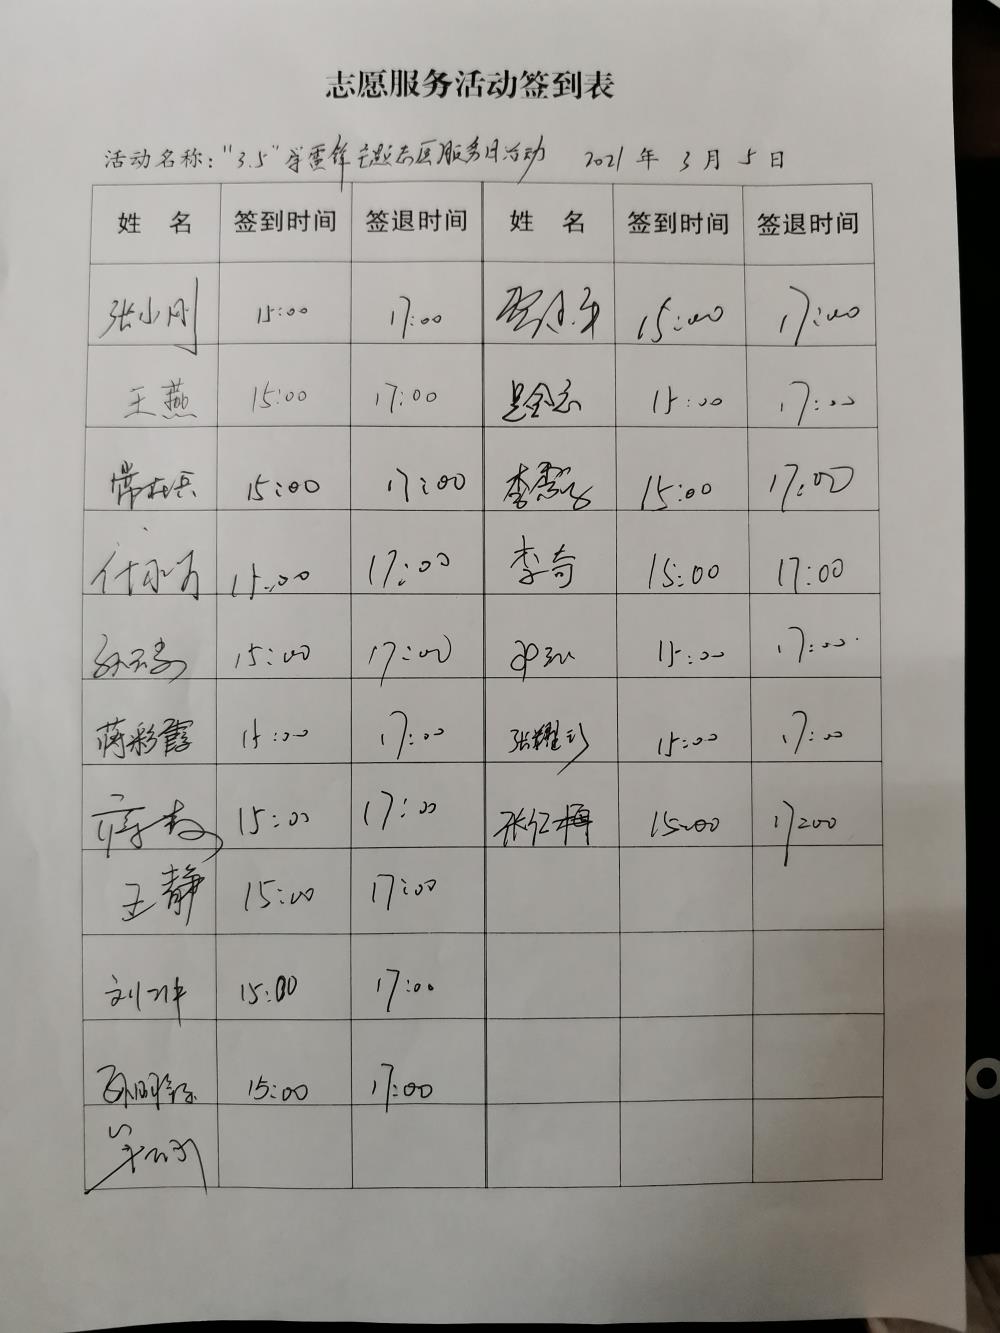 志愿服务活动签到表
活动名称："3.5"学雷锋主题志愿服务日活动 2021年3月5日
姓 名 签到时间 签退时间 姓 名 签到时间 签退时间
张小刚 15:00 17:00 15:00 17:00
王燕 15:00 17:00 15:00 17:00
15:00 17:00 15:00 17:00
15:00 17:00 李奇 15:00 17:00
15:00 17:00 15:00 17:00
蒋彩霞 15:00 17:00 15:00 17:00
15:00 17:00 张仁梅 15:00 17:00
王静 15:00 17:00
15:00 17:00
15:00 17:00